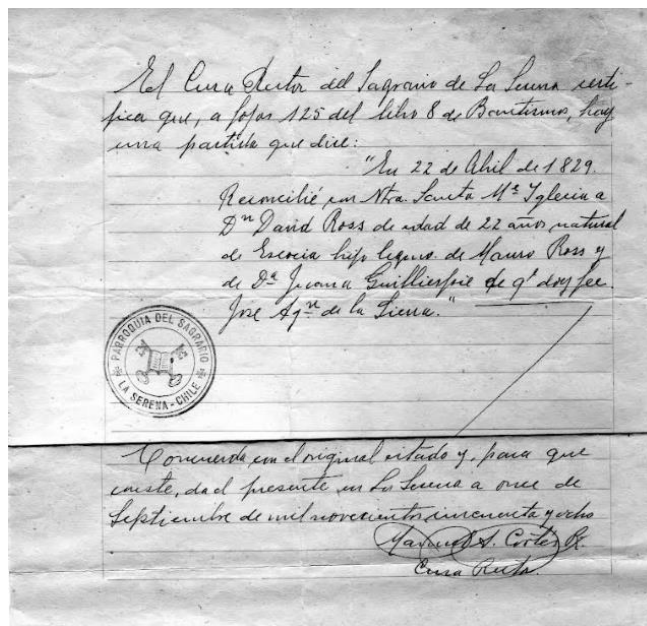 El Cura Rector del Sagrario de La Serena certi-
fica que, a fojas 125 del libro 8 de Bautismos, hay
una partida que dice:
"En 22 de Abril de 1829.
Reconcilié en Ntra. Santa Me. Yglecia a
Dn David Ross de edad de 22 años natural
de Escocia hijo legmo. de Mauro Ross y
de Da. Juana Guilliespie de qe. doy fee.
José Agn. de la Sierra."
PARROQUIA DEL SAGRARIO
LA SERENA - CHILE
Concuerda con el original citado y, para que
conste, doi el presente en La Serena a once de
Septiembre de mil novecientos cincuenta y ocho
Manuel A. Cortés
Cura Rector.